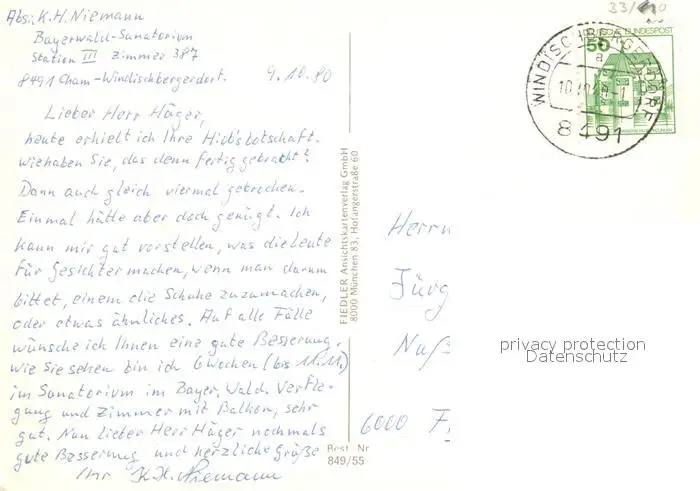 Abs.: K.H. Niemann
Bayerwald-Sanatorium
Station III Zimmer 387
8491 Cham-Windischbergerdorf. 9.10.80
Lieber Herr Häger,
heute erhielt ich Ihre Hiobsbotschaft.
wie haben Sie, das denn fertig gebracht?
Dann auch gleich viermal gebrochen.
Einmal hätte aber doch genügt. Ich
kann mir gut vorstellen, was die Leute
für Gesichter machen, wenn man darum
bittet, einem die Schuhe zuzumachen,
oder etwas ähnliches. Auf alle Fälle
wünsche ich Ihnen eine gute Besserung.
Wie Sie sehen bin ich 6 Wochen (bis 11.11.)
im Sanatorium im Bayer. Wald. Verfle-
gung und Zimmer mit Balkon, sehr
gut. Nun lieber Herr Häger nochmals
gute Besserung und herzliche Grüße
Ihr K.H. Niemann
FIEDLER Ansichtskartenverlag GmbH
8000 München 83, Hofangerstraße 60
Best. Nr
849/55
33/
50
DEUTSCHE BUNDESPOST
WINDISCHBERGERDORF
a
8491
Herrn
Jürg
Nuß
6000 F
privacy protection
Datenschutz